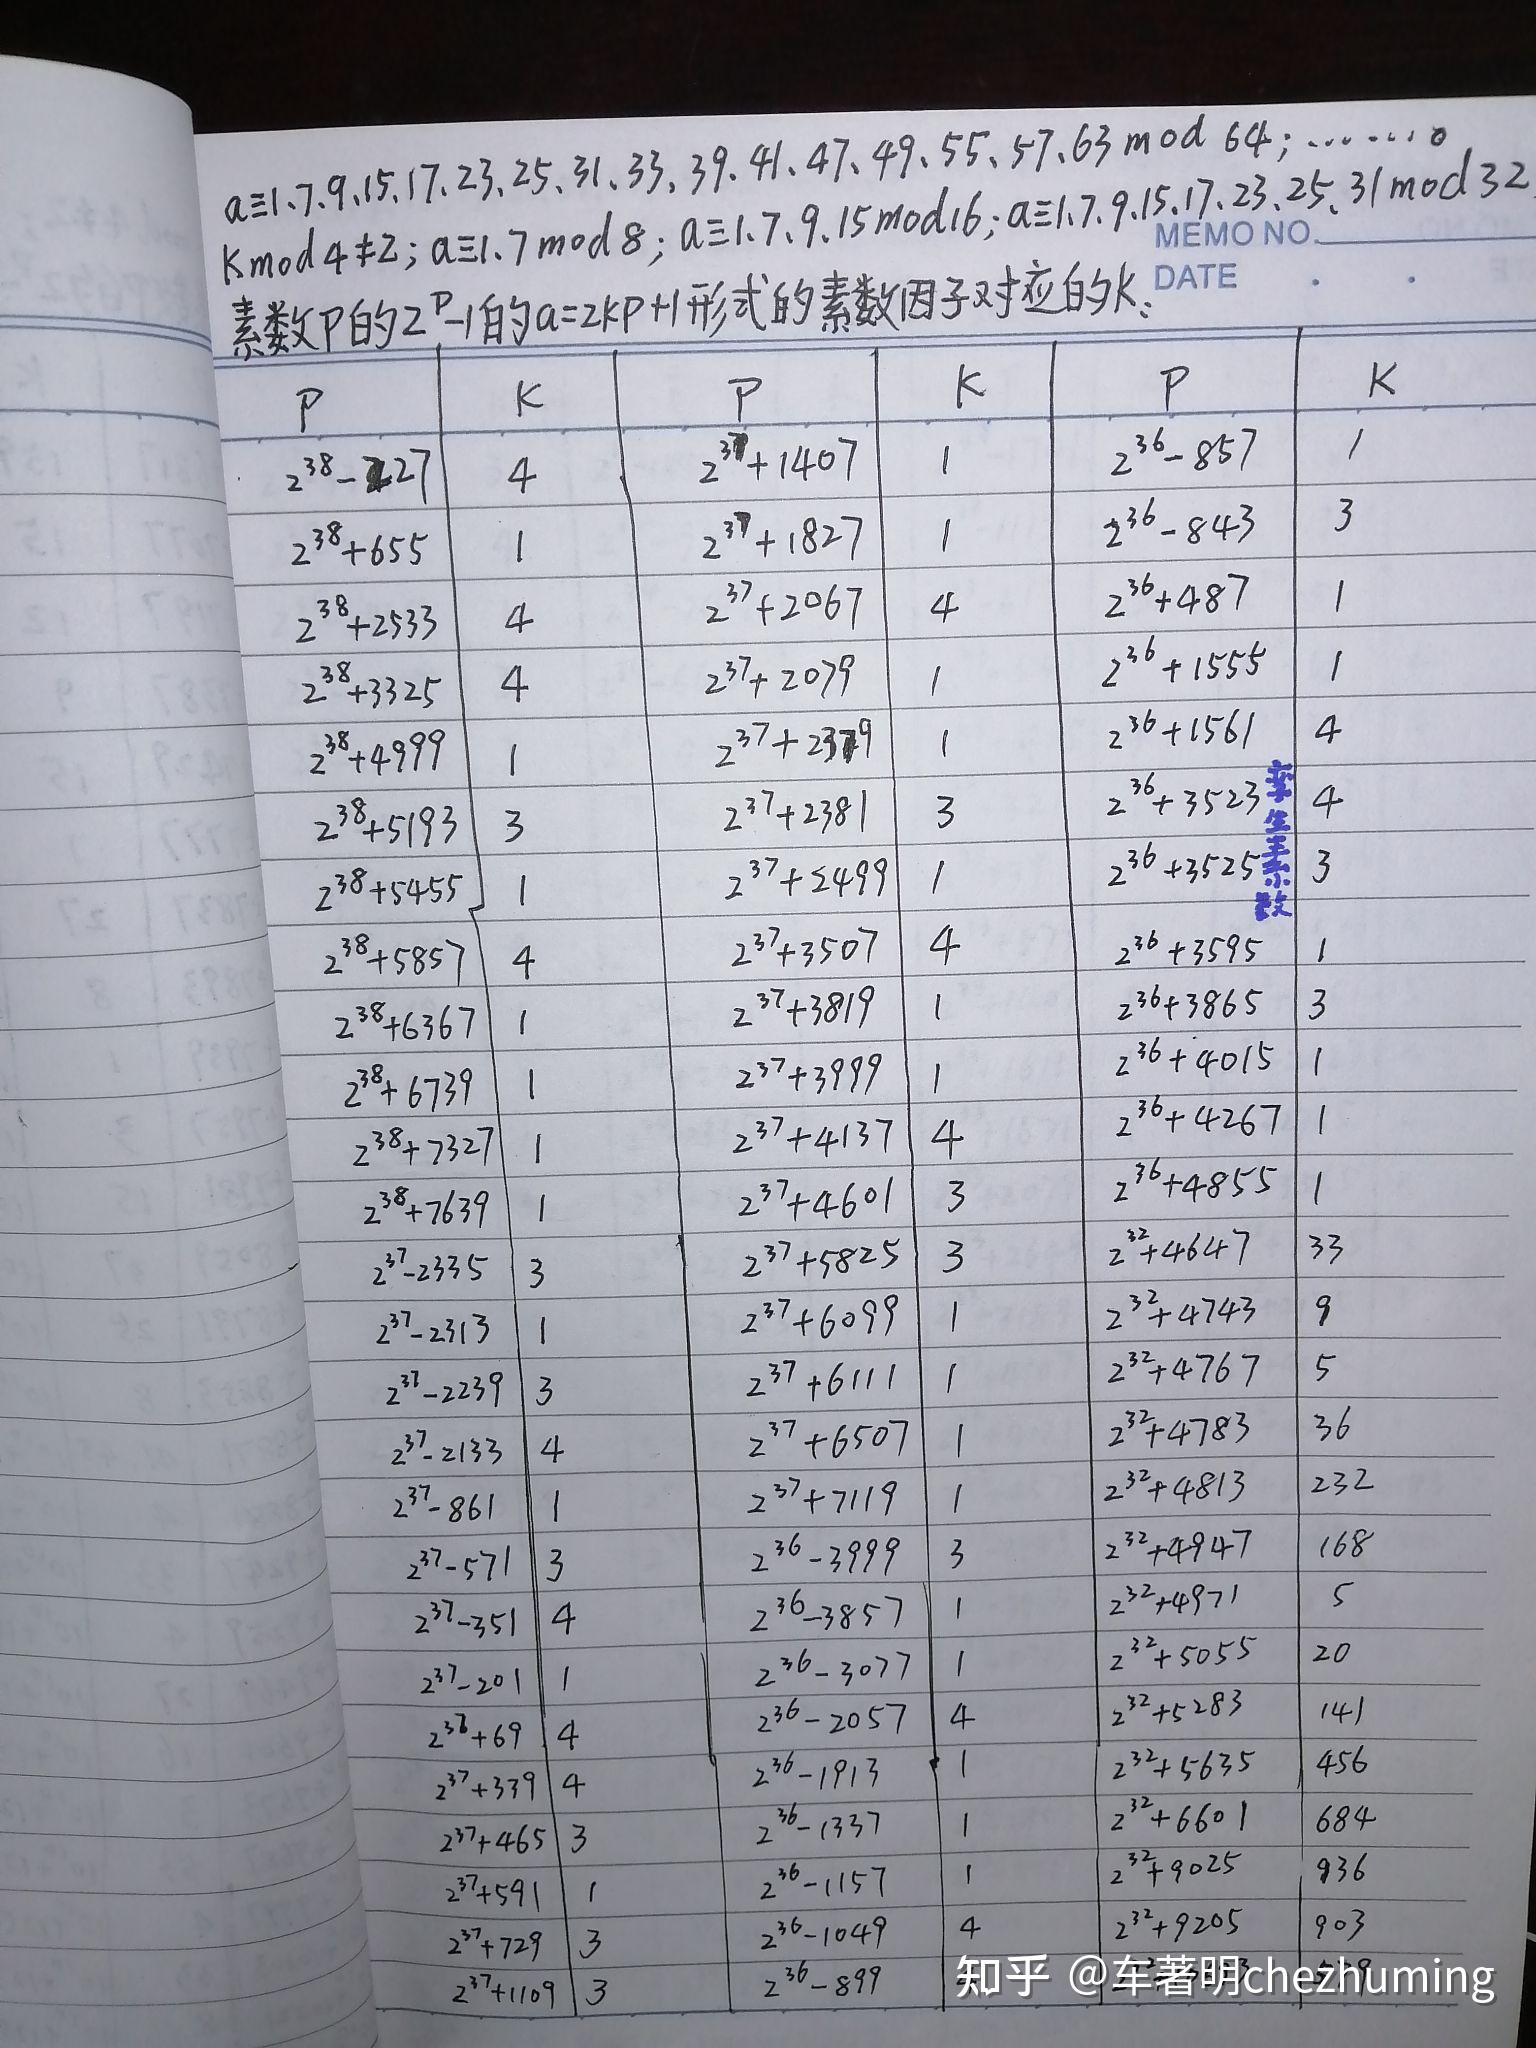 a≡1、7、9、15、17、23、25、31、33、39、41、47、49、55、57、63 mod 64；………。
K mod 4≠2；a≡1、7 mod 8；a≡1、7、9、15 mod 16；a≡1、7、9、15、17、23、25、31 mod 32
MEMO NO.
DATE . .
素数P的2^P-1的a=2KP+1形式的素数因子对应的K：
P K P K P K
2^38-227 4 2^37+1407 1 2^36-857 1
2^38+655 1 2^37+1827 1 2^36-843 3
2^38+2533 4 2^37+2067 4 2^36+487 1
2^38+3325 4 2^37+2079 1 2^36+1555 1
2^38+4999 1 2^37+2379 1 2^36+1561 4
2^38+5193 3 2^37+2381 3 2^36+3523 4
孪生素数
2^38+5455 1 2^37+2499 1 2^36+3525 3
2^38+5857 4 2^37+3507 4 2^36+3595 1
2^38+6367 1 2^37+3819 1 2^36+3865 3
2^38+6739 1 2^37+3999 1 2^36+4015 1
2^38+7327 1 2^37+4137 4 2^36+4267 1
2^38+7639 1 2^37+4601 3 2^36+4855 1
2^37-2335 3 2^37+5825 3 2^32+4647 33
2^37-2313 1 2^37+6099 1 2^32+4743 9
2^37-2239 3 2^37+6111 1 2^32+4767 5
2^37-2133 4 2^37+6507 1 2^32+4783 36
2^37-861 1 2^37+7119 1 2^32+4813 232
2^37-571 3 2^36-3999 3 2^32+4947 168
2^37-351 4 2^36-3857 1 2^32+4971 5
2^37-201 1 2^36-3077 1 2^32+5055 20
2^37+69 4 2^36-2057 4 2^32+5283 141
2^37+339 4 2^36-1913 1 2^32+5635 456
2^37+465 3 2^36-1337 1 2^32+6601 684
2^37+591 1 2^36-1157 1 2^32+9025 936
2^37+729 3 2^36-1049 4 2^32+9205 903
2^37+1109 3 2^36-899
知乎 @车著明chezhuming